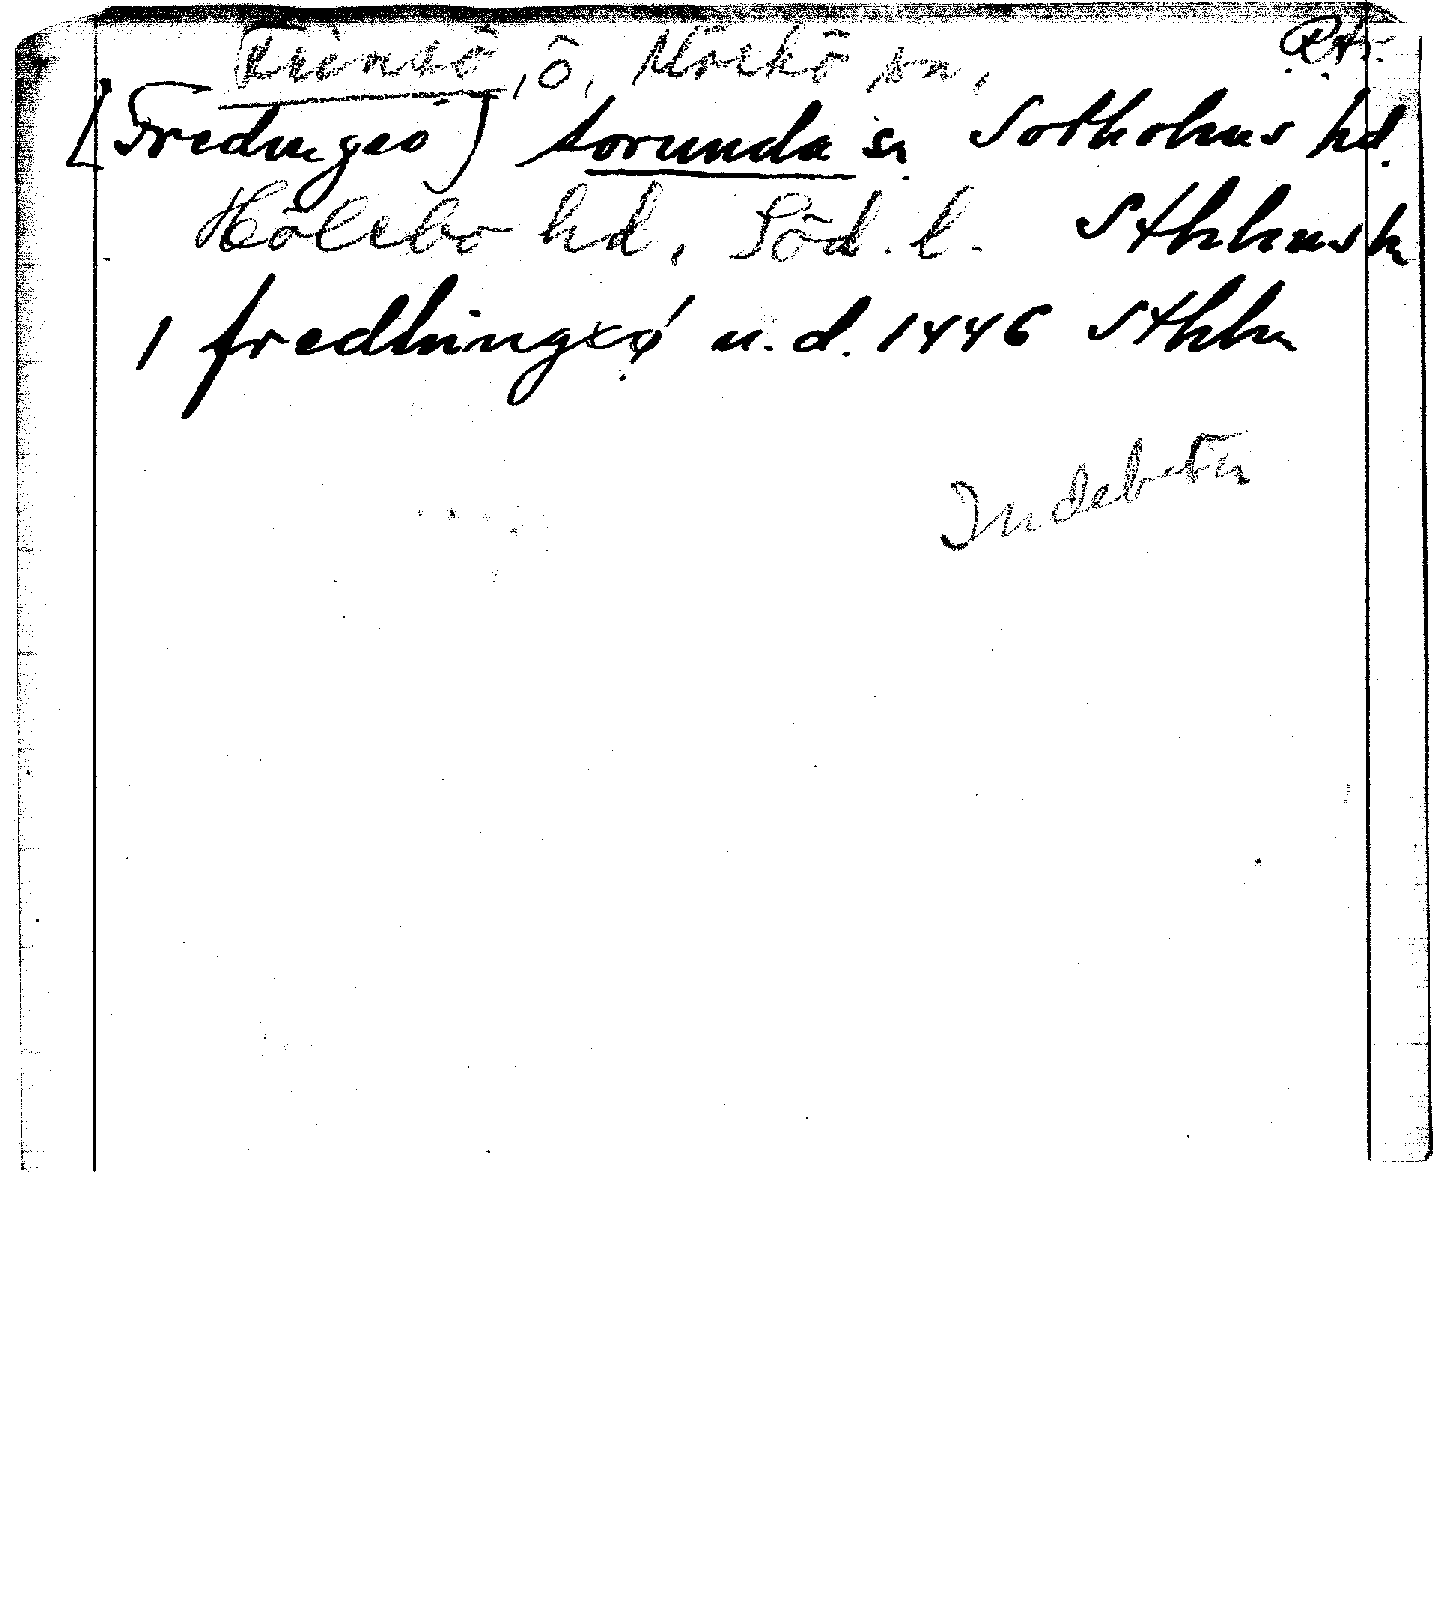 Trinsö, ö, Mörkö sn, R.A.
[Fredingsö] Sorunda sn Sotholms hd.
Hölebo hd, Söd. l. Sthlms l
1 fredhingxø u.d. 1446 Sthlm
Indebetn